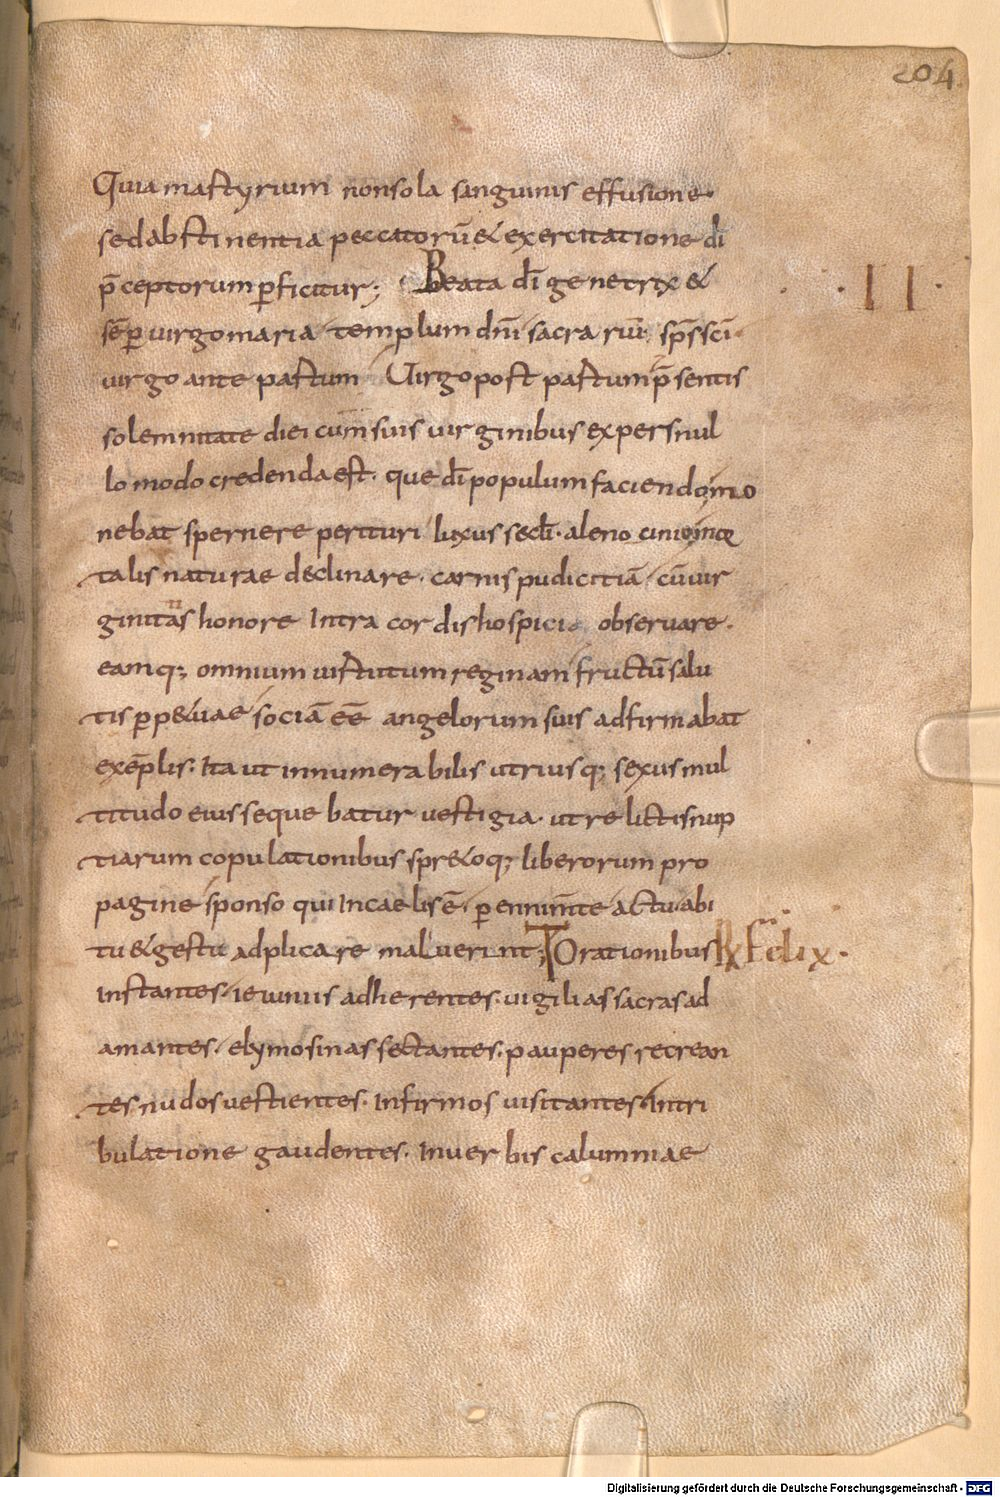 204
Quia martyrium non sola sanguinis effusione.
sed abstinentia peccatorū & exercitatione dī
p̄ceptorum ꝑficitur; Beata dī genetrix &
sēꝑ uirgo maria templum dn̄i sacrarıū sp̄s sc̄i.
uirgo ante partum Uirgo post partum p̄sentis
.II.
solemnitate diei cum suis uirginibus expers nul
lo modo credenda est. que dī populum faciendo mo
nebat spernere perituri luxus sec̄li.
talis naturae declinare. carnis pudicitiā cū uir
ginitas honore Intra cordis hospici obseruare.
eamq; omnium uirtutum reginam fructū salu
tis ꝑp&uae sociā eē angelorum suis adfirmabat
exēplis. Ita ut innumerabilis utriusq; sexus mul
titudo eius sequebatur uestigia. ut relictis nup
tiarum copulationibus spr&oq; liberorum pro
pagine sponso qui In caelis ē. ꝑenniter actu abi
tu & gestu adplicare maluerint; Orationibus
Felix.
Instantes. ieiuniis adherentes. uigilias sacras ad
amantes. elymosinas sectantes. pauperes recrean
tes nudos uestientes. Infirmos uisitantes. Intri
bulatione gaudentes. Inuerbis calumniae
Digitalisierung gefördert durch die Deutsche Forschungsgemeinschaft - DFG